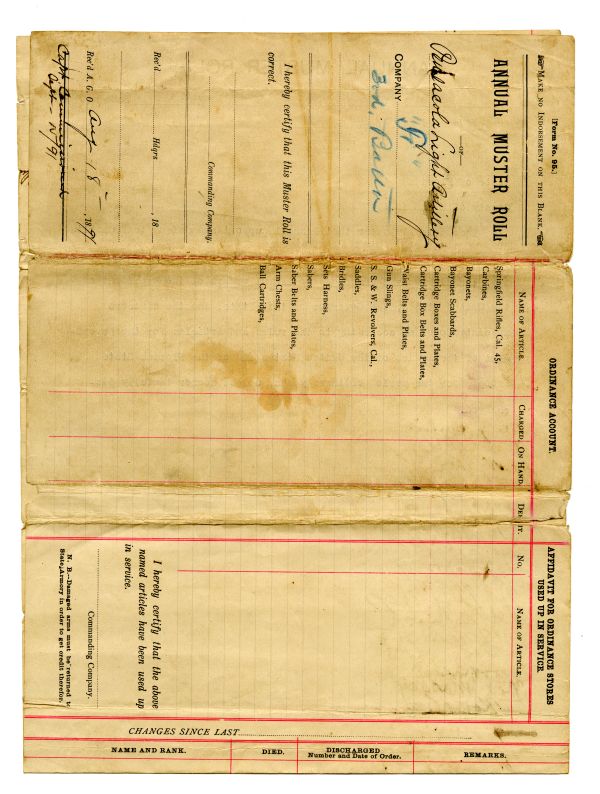 [Form No. 95.]
MAKE NO INDORSEMENT ON THIS BLANK.
ANNUAL MUSTER ROLL
—OF—
Pensacola Light Artillery
COMPANY
3rd. Batt'n
I hereby certify that this Muster Roll is
correct.
Commanding Company.
Rec'd Hdqrs , 18
Rec'd A. G. O. Aug 18 1891
ORDINANCE ACCOUNT.
NAME OF ARTICLE. CHARGED. ON HAND. DEFICIT.
Springfield Rifles, Cal. 45,
Carbines,
Bayonets,
Bayonet Scabbards,
Cartridge Boxes and Plates,
Cartridge Box Belts and Plates,
Waist Belts and Plates,
Gun Slings,
S. & W. Revolvers, Cal.,
Saddles,
Bridles,
Sets Harness,
Sabers,
Saber Belts and Plates,
Arm Chests,
Ball Cartridges,
AFFIDAVIT FOR ORDINANCE STORES
USED UP IN SERVICE.
NO. NAME OF ARTICLE.
I hereby certify that the above
named articles have been used up
in service.
Commanding Company.
N. B.—Damaged arms must be returned to
State Armory in order to get credit therefor.
CHANGES SINCE LAST
NAME AND RANK. DIED. DISCHARGED REMARKS.
Number and Date of Order.